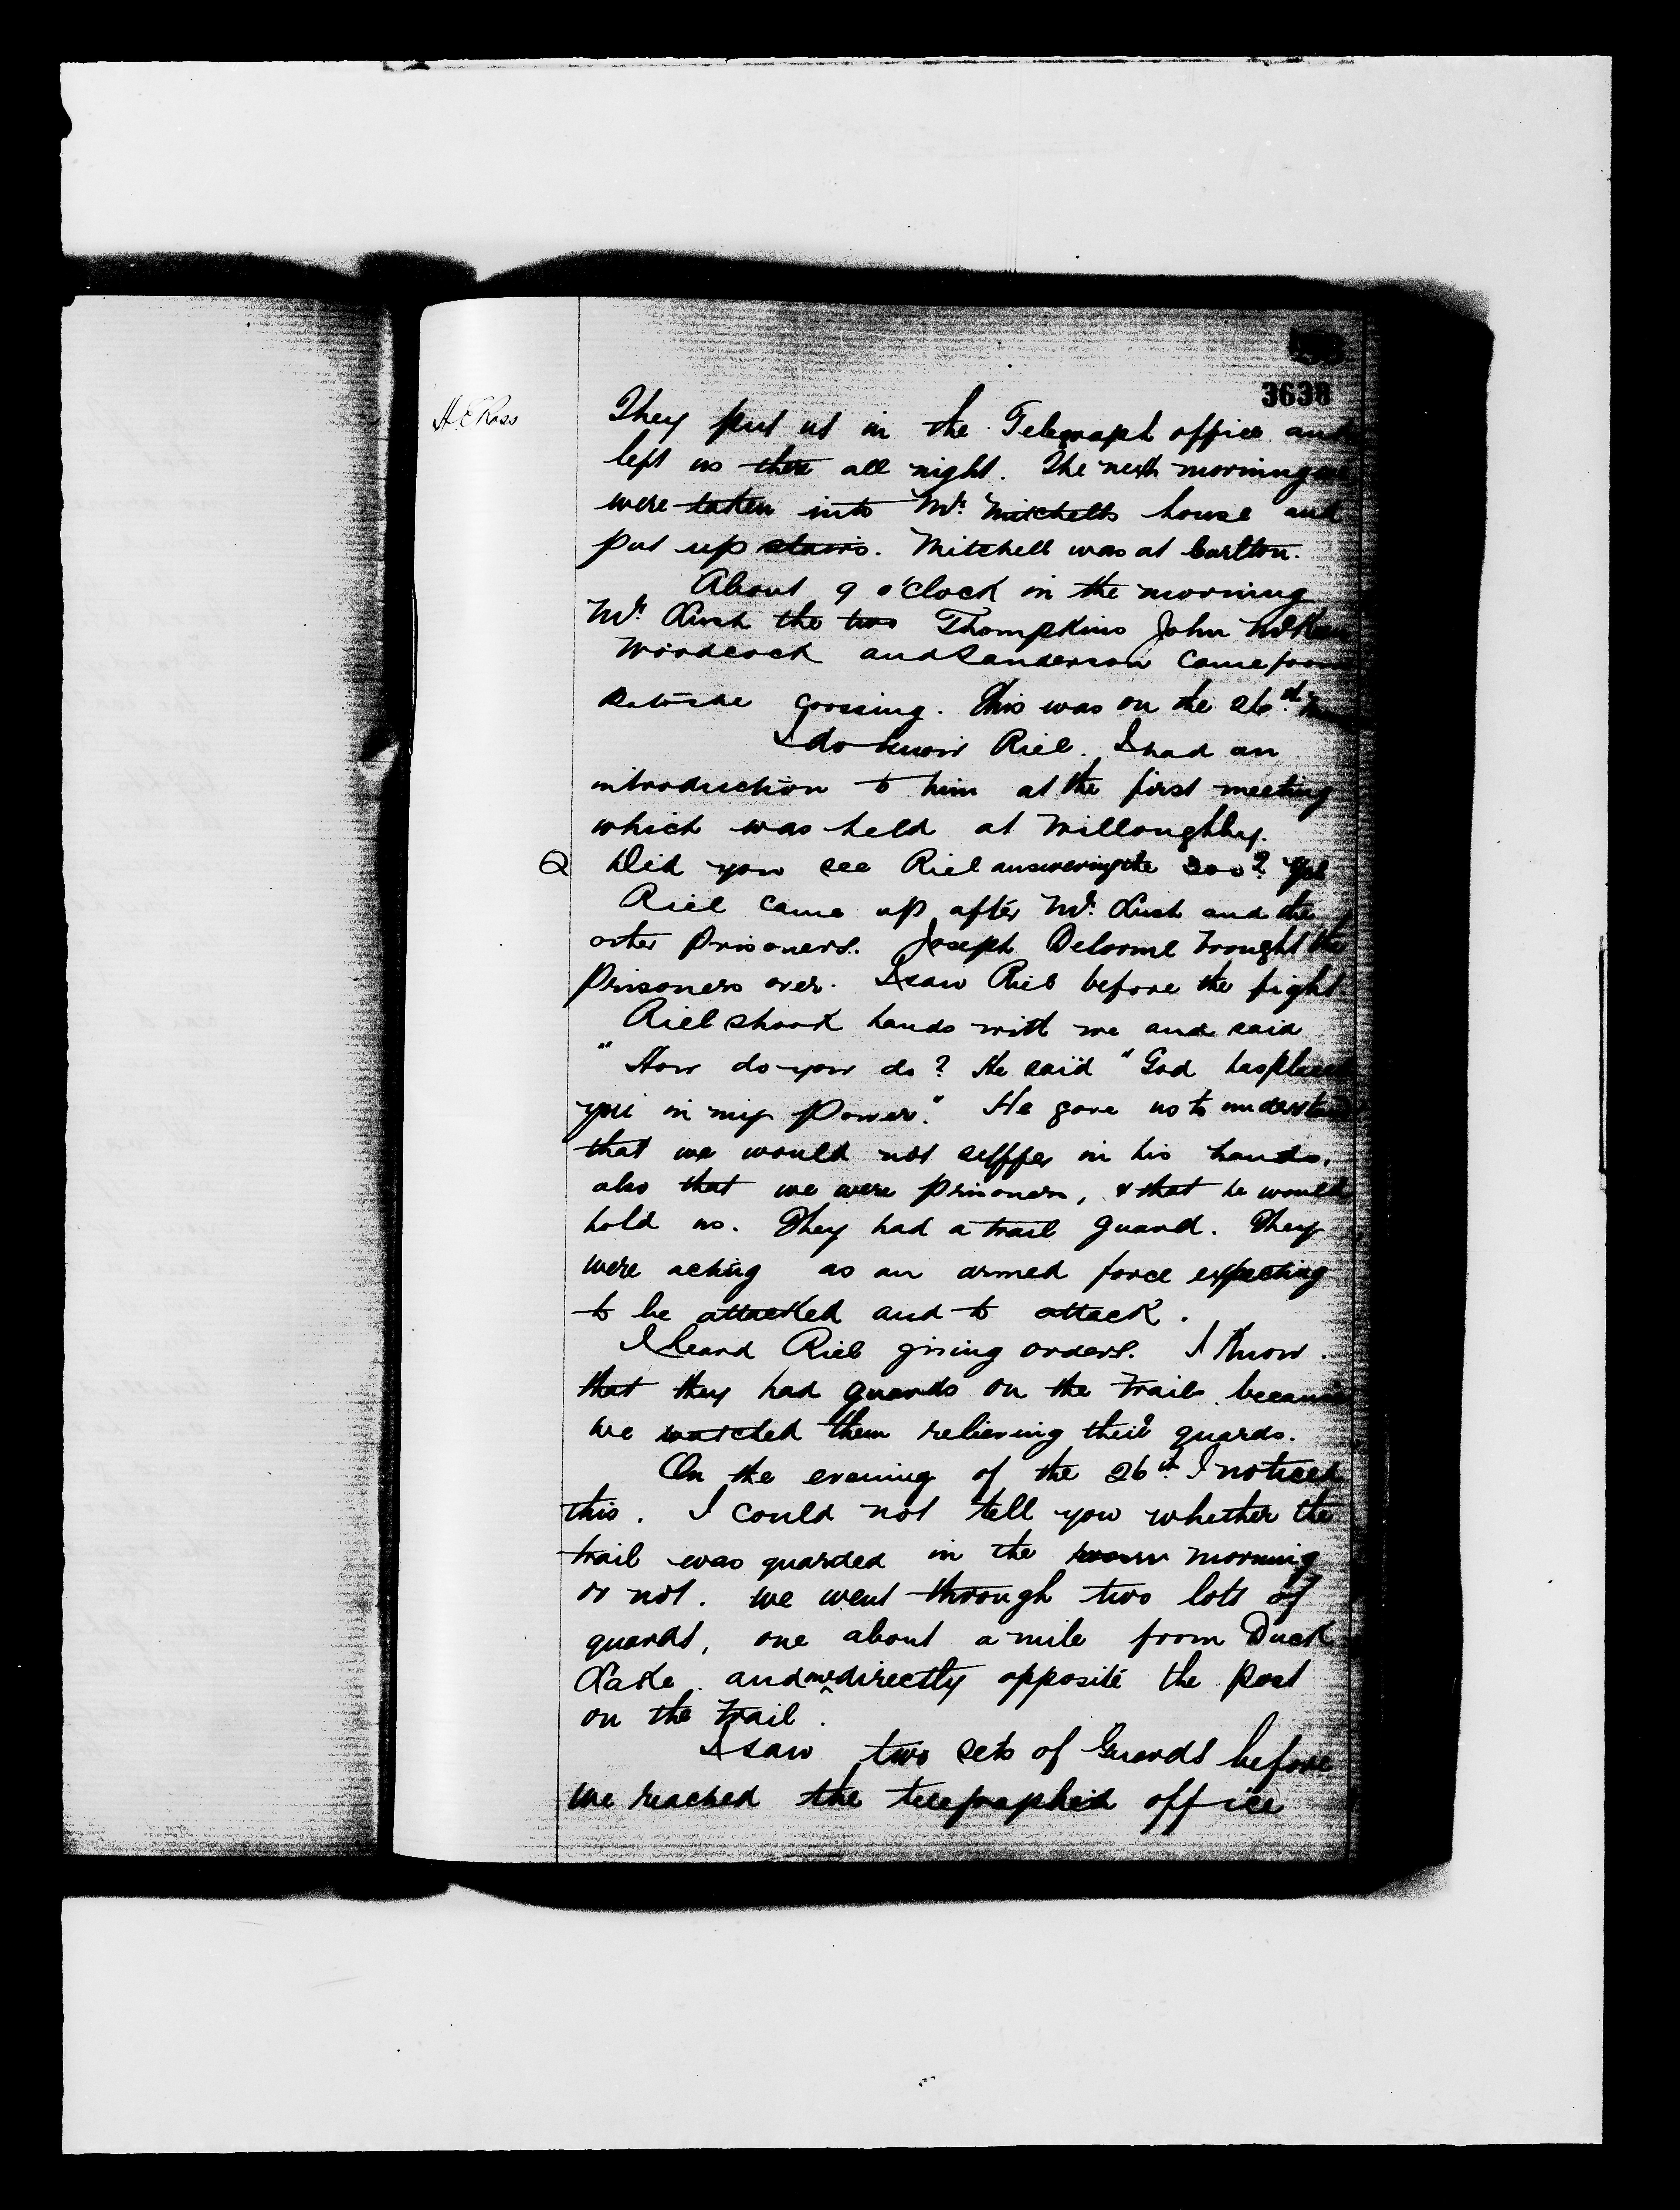 3638
H. E Ross
They put us in the Telegraph office and
left us there all night. The next morning we
were taken into Mr. Mitchells house and
put up stairs. Mitchell was at Carlton.
About 9 o'clock in the morning
Mr. Lush the two Thompkins John McKean
Woodcock and Sanderson came from
Batoche crossing. This was on the 26th
I do know Riel. I had an
introduction to him at the first meeting
which was held at Willoughby.
Q Did you see Riel answering the 200? Yes
Riel came up after Mr. Lush and the
other Prisoners. Joseph Delorme brought the
Prisoners over. I saw Riel before the fight
Riel shook hands with me and said
"How do you do? He said "God has placed
you in my Power." He gave us to understand
that we would not suffer in his hands.
also that we were prisoners, & that he would
hold us. They had a trail guard. They
were acting as an armed force expecting
to be attacked and to attack.
I heard Riel giving orders. I know
that they had guards on the trails because
we watched them relieving their guards.
On the evening of the 26th I noticed
this. I could not tell you whether the
trail was guarded in the morning
or not. we went through two lots of
guards, one about a mile from Duck
Lake and one directly opposite the Post
on the trail.
I saw two sets of Guards before
we reached the telegraphed office